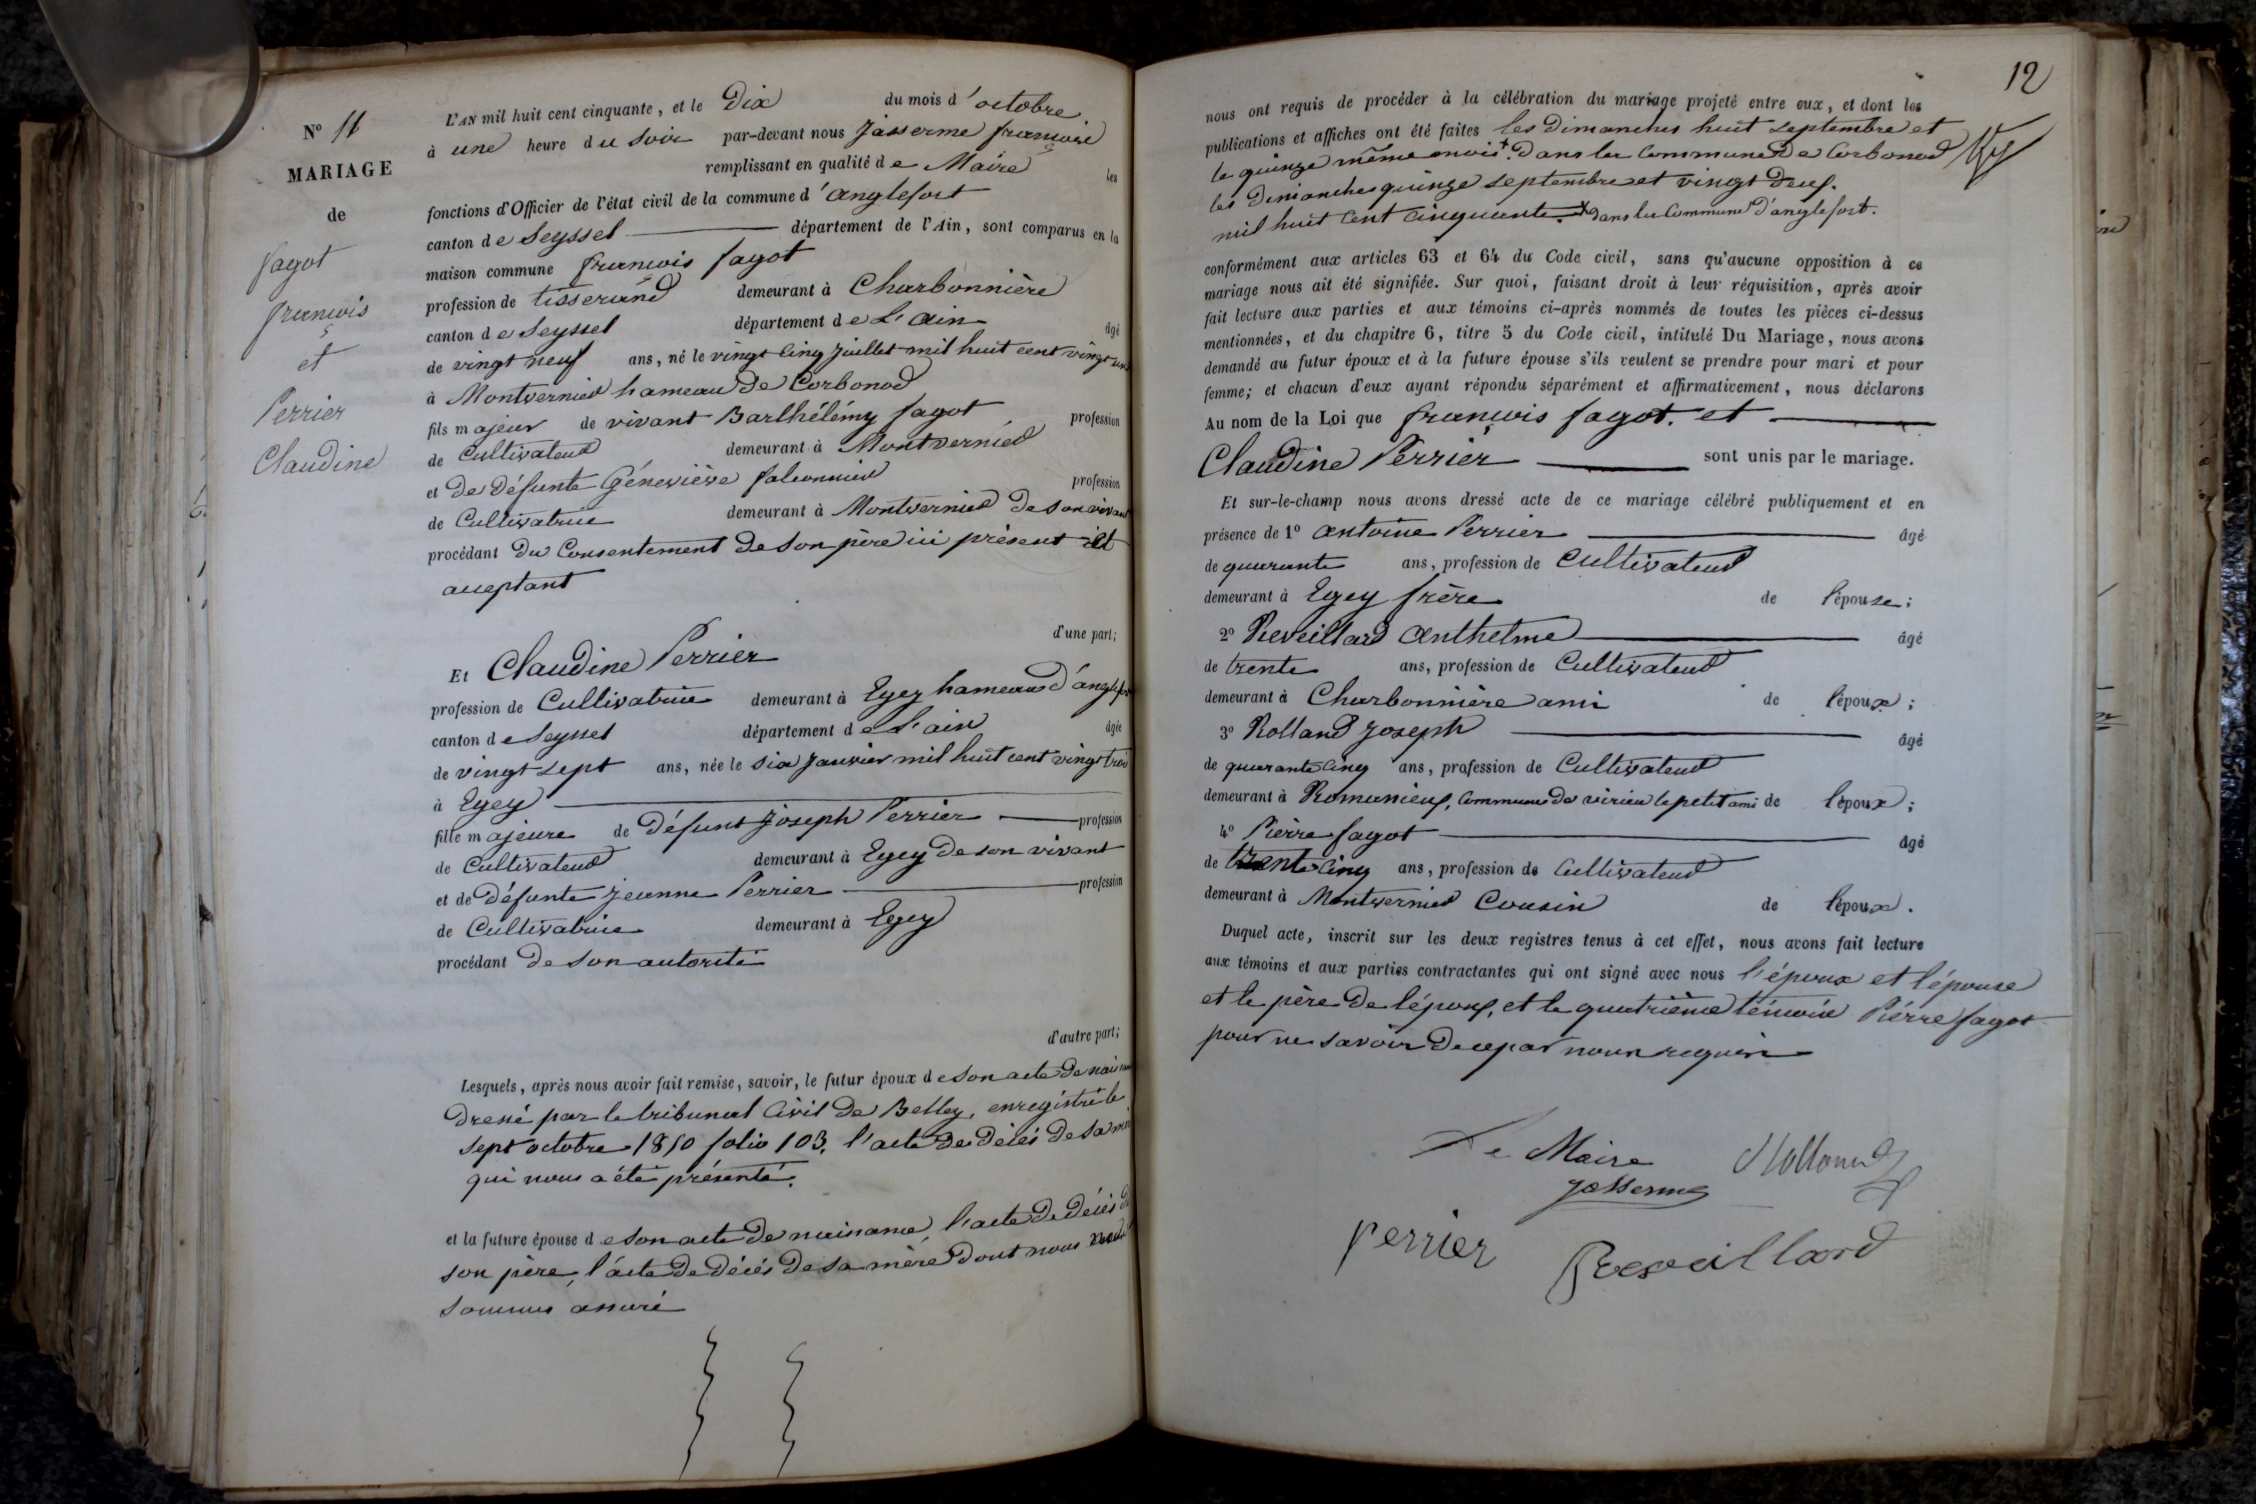 Nº 11
MARIAGE
de
fagot
françois
et
Perrier
Claudine
L'AN mil huit cent cinquante, et le Dix du mois d'octobre
à une heure du soir par-devant nous Jasserme françois
remplissant en qualité de Maire les
fonctions d'Officier de l'état civil de la commune d'anglefort
canton de Seyssel département de l'Ain, sont comparus en la
maison commune françois fagot
profession de tisserand demeurant à Charbonnière
canton de Seyssel département de L'ain âgé
de vingt neuf ans, né le vingt cinq Juillet mil huit cent vingt un
à Montvernied hameau de Corbonod
fils majeur de vivant Barthélémy fagot profession
de Cultivateur demeurant à Montvernied
et de Défunte Géneviève falconnier profession
de Cultivatrice demeurant à Montvernied De son vivant
procédant du Consentement De son père ici présent et
acceptant
d'une part;
Et Claudine Perrier
profession de Cultivatrice demeurant à Egey hameau d'anglefort
canton de Seyssel département de L'ain âgée
de vingt sept ans, née le six Janvier mil huit cent vingt trois
à Egey
fille majeure de Défunt Joseph Perrier profession
de Cultivateur demeurant à Egey De son vivant
et de Défunte jeanne Perrier profession
de Cultivatrice demeurant à Egey
procédant De son autorité
d'autre part;
Lesquels, après nous avoir fait remise, savoir, le futur époux de son acte de
Dressé par le tribunal Civil de Belley, enregistré le
sept octobre 1850 folio 103, l'acte de décès de sa
qui nous a été présenté.
et la future épouse de son acte de naissance, l'acte de décès de
son père, l'acte de décès de sa mère dont nous nous
sommes assuré
12
nous ont requis de procéder à la célébration du mariage projeté entre eux, et dont les
publications et affiches ont été faites les Dimanches huit septembre et
le quinze même mois + dans la Commune de Corbonod
les Dimanches quinze septembre et vingt deux
mil huit cent cinquante. + dans la Commune d'anglefort.
conformément aux articles 63 et 64 du Code civil, sans qu'aucune opposition à ce
mariage nous ait été signifiée. Sur quoi, faisant droit à leur réquisition, après avoir
fait lecture aux parties et aux témoins ci-après nommés de toutes les pièces ci-dessus
mentionnées, et du chapitre 6, titre 5 du Code civil, intitulé Du Mariage, nous avons
demandé au futur époux et à la future épouse s'ils veulent se prendre pour mari et pour
femme; et chacun d'eux ayant répondu séparément et affirmativement, nous déclarons
Au nom de la Loi que françois fagot. et
Claudine Perrier sont unis par le mariage.
Et sur-le-champ nous avons dressé acte de ce mariage célébré publiquement et en
présence de 1º antoine Perrier âgé
de quarante ans, profession de Cultivateur
demeurant à Egey frère de l'épouse;
2º Reveillard Anthelme âgé
de trente ans, profession de Cultivateur
demeurant à Charbonnière ami de l'époux;
3º Rolland Joseph âgé
de quarante cinq ans, profession de Cultivateur
demeurant à Romanieux, Commune de virieu le petit ami de l'époux;
4º Pierre fagot âgé
de trente cinq ans, profession de Cultivateur
demeurant à Montvernied Cousin de l'époux.
Duquel acte, inscrit sur les deux registres tenus à cet effet, nous avons fait lecture
aux témoins et aux parties contractantes qui ont signé avec nous l'époux et l'épouse
et le père de l'époux, et le quatrième témoin Pierre fagot
pour ne savoir de ce par nous requis
Le Maire
Jasserme
Rolland
Perrier
Reveillard